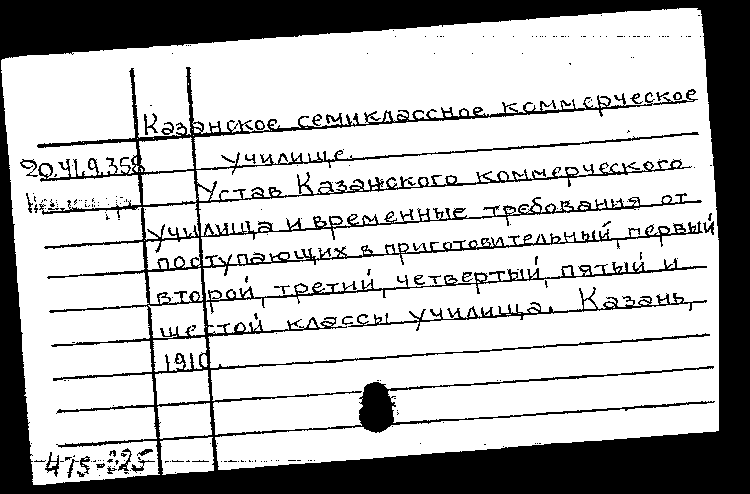 Казанское семиклассное коммерческое
20.41.9.358 училище.
Устав Казанского коммерческого
училища и временные требования от
поступающих в приготовительный, первый
второй, третий, четвертый, пятый и
шестой классы училища. Казань,
1910.
475-325